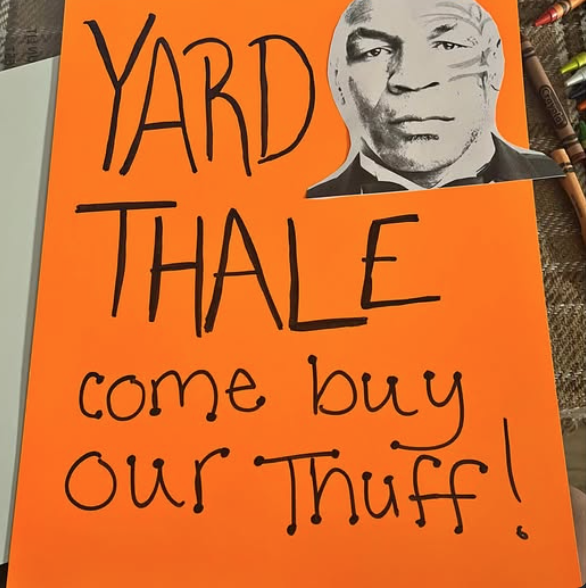 YARD
THALE
come buy
our Thuff!